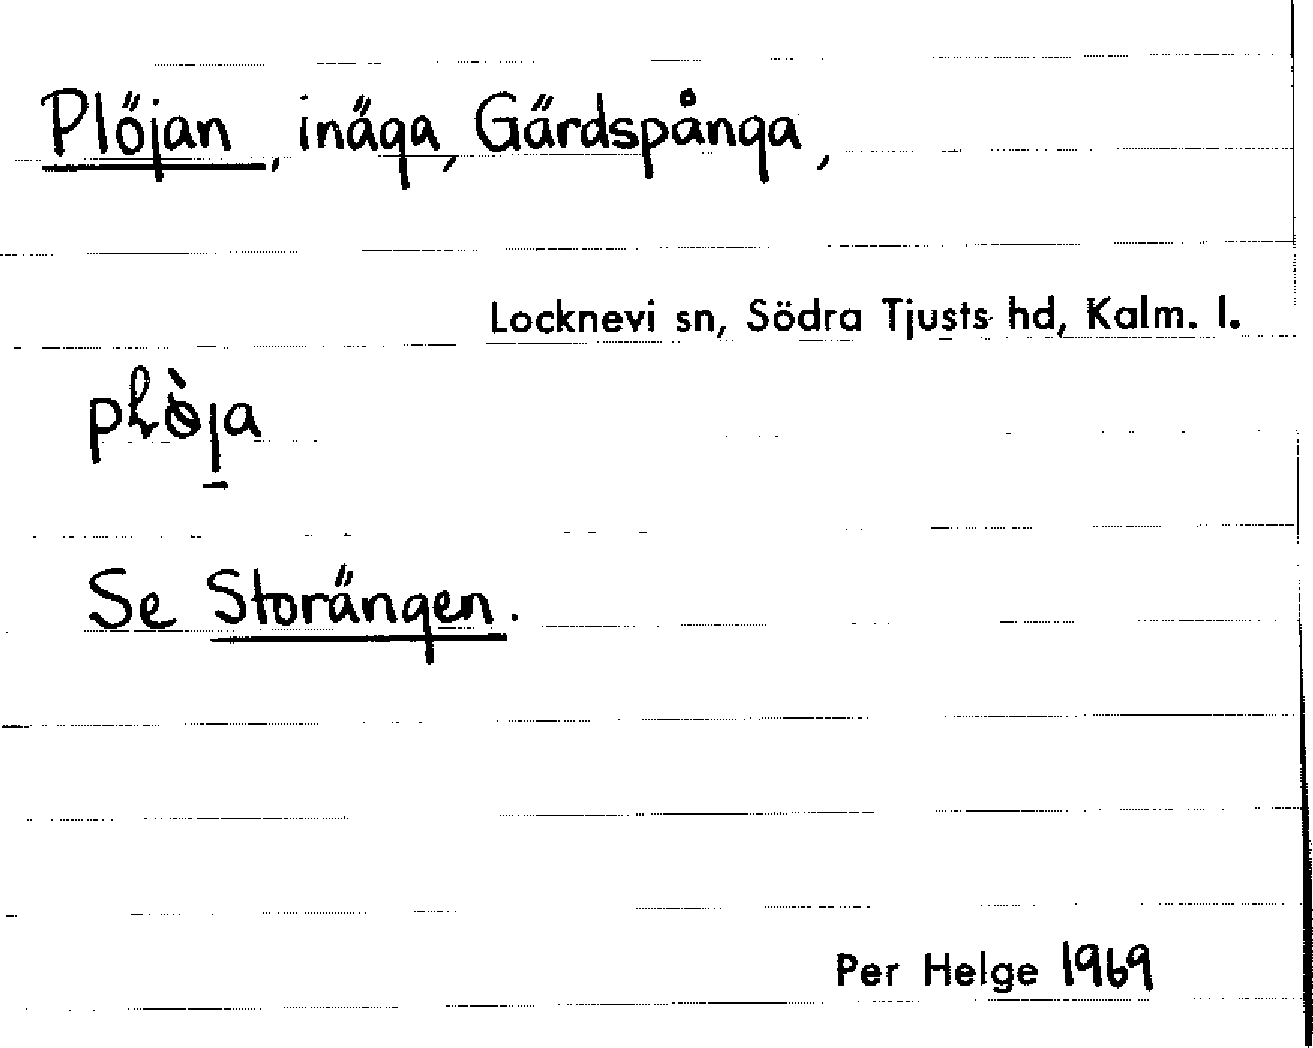 Plöjan, inäga, Gärdspånga,
Locknevi sn, Södra Tjusts hd, Kalm. l.
Se Storängen.
Per Helge 1969